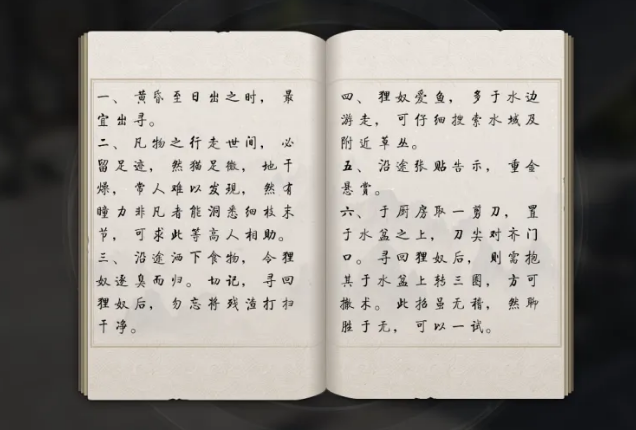 一、黄昏至日出之时，最
宜出寻。
二、凡物之行走世间，必
留足迹，然猫足微，地干
燥，常人难以发现，然有
瞳力非凡者能洞悉细枝末
节，可求此等高人相助。
三、沿途洒下食物，令狸
奴逐臭而归。切记，寻回
狸奴后，勿忘将残渣打扫
干净。
四、狸奴爱鱼，多于水边
游走，可仔细搜索水域及
附近草丛。
五、沿途张贴告示，重金
悬赏。
六、于厨房取一剪刀，置
于水盆之上，刀尖对齐门
口。寻回狸奴后，则需抱
其于水盆上转三圈，方可
撤术。此招虽无稽，然聊
胜于无，可以一试。